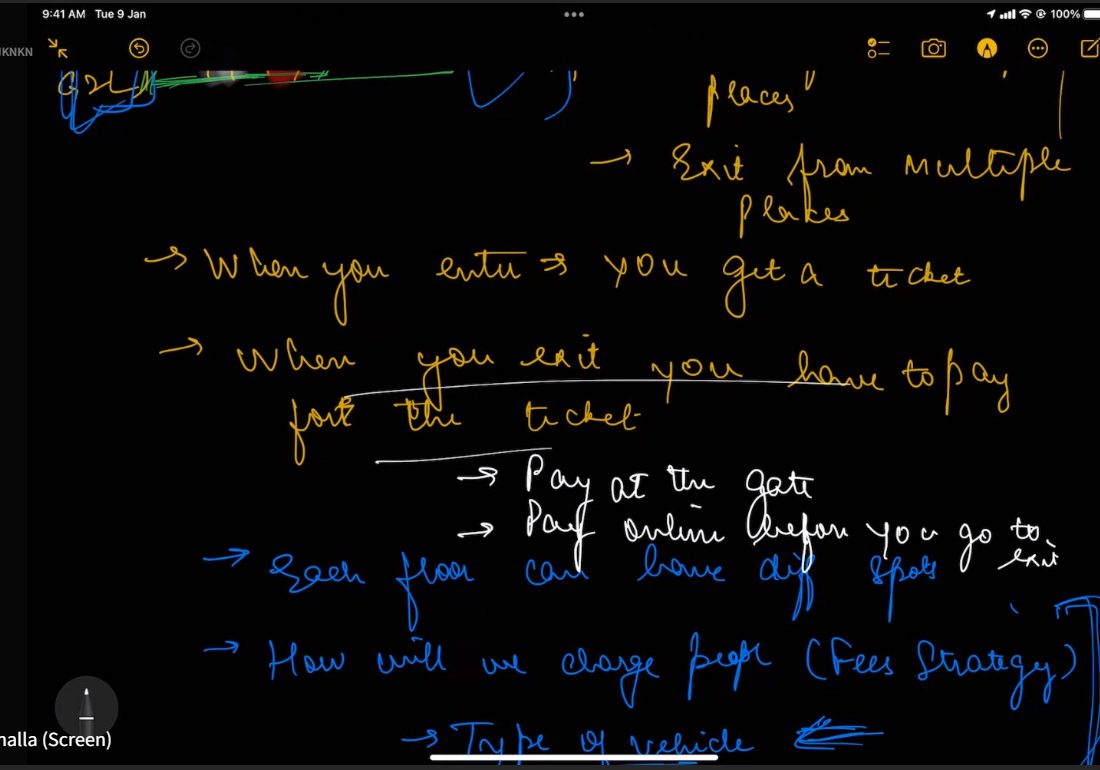 9:41 AM Tue 9 Jan
100%
KNKN
places
→ Exit from Multiple
places
→ When you enter ⇒ you get a ticket
→ When you exit you have to pay
for the ticket
→ Pay at the gate
→ Pay online before you go to
exit
→ Each floor can have diff spots
→ How will we charge people (Fees Strategy)
→ Type of vehicle
halla (Screen)